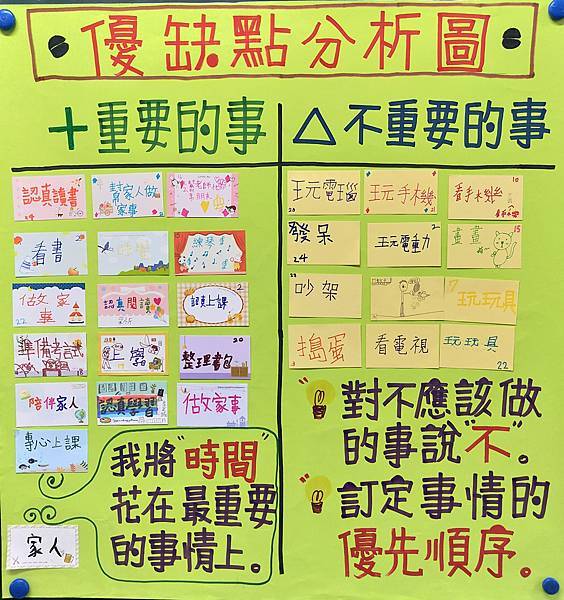 優缺點分析圖
＋重要的事
△不重要的事
認真讀書
幫家人做
家事
看書
練琴
做文家
事
22
認真閱讀
認真上課
2
準備考試
上學
整理書包
20
陪伴家人
認真學習
做家事
專心上課
家人
我將"時間"
花在最重要
的事情上。
玩電腦
玩手機
看手機
10
發呆
24
玩電動
2
畫畫
15
吵架
玩玩具
搗蛋
看電視
玩玩具
22
對不應該做
的事說"不"。
訂定事情的
優先順序。